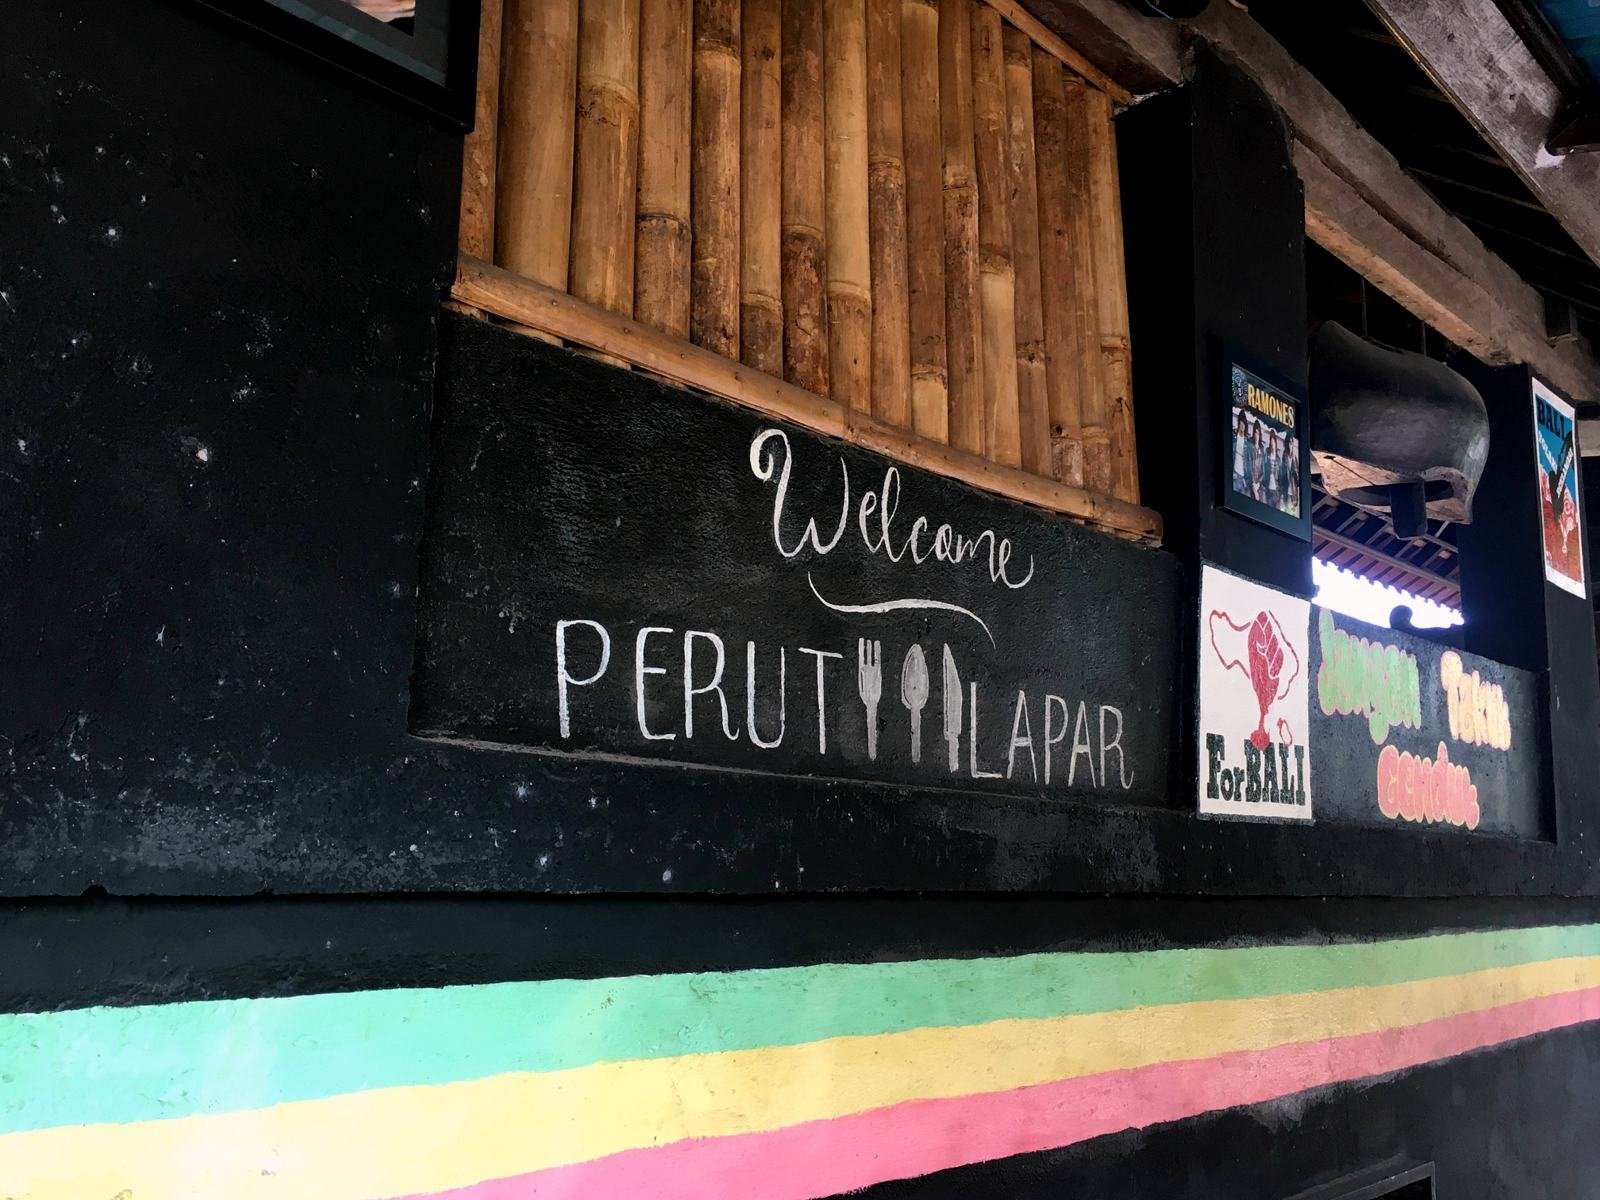 Welcome
PERUT LAPAR
RAMONES
ForBALI
Jangan Takut
Gendut
BALI